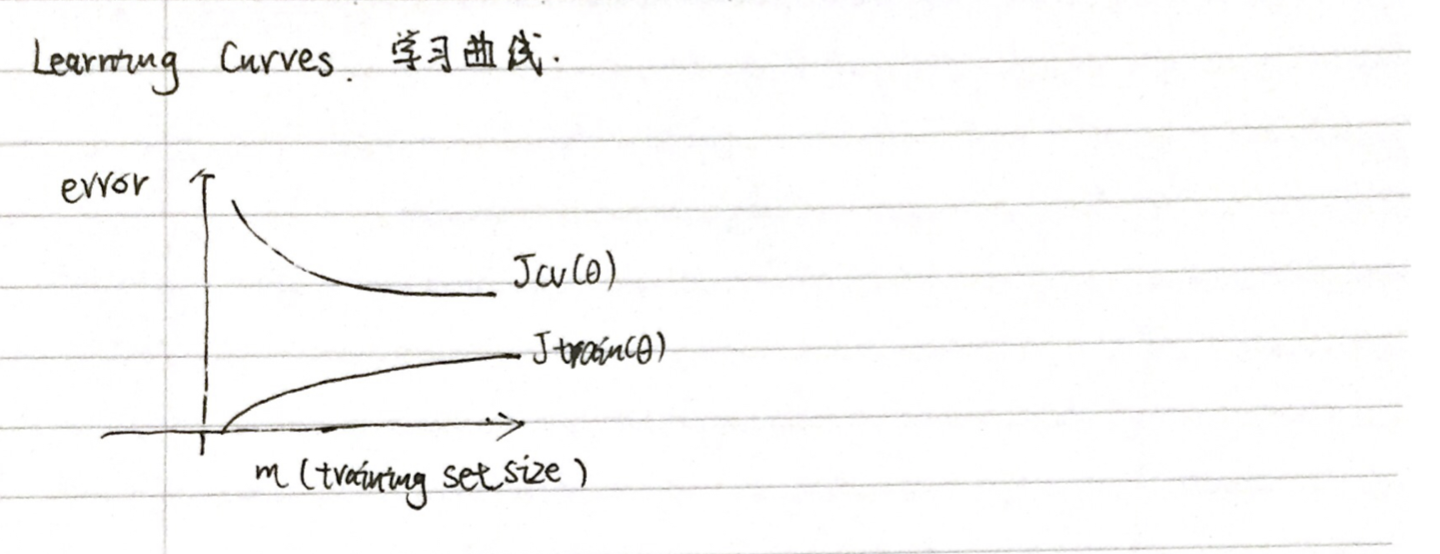 Learning Curves. 学习曲线.
error
Jcv(θ)
Jtrain(θ)
m (training set size)